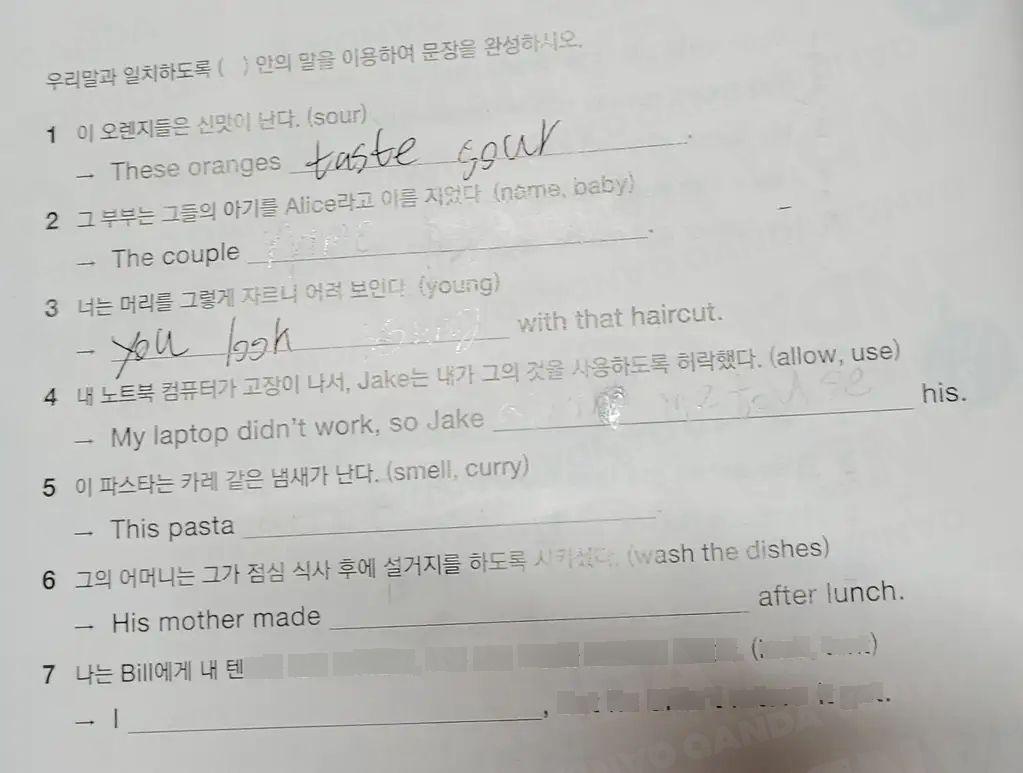 우리말과 일치하도록 ( ) 안의 말을 이용하여 문장을 완성하시오.
1 이 오렌지들은 신맛이 난다. (sour)
→ These oranges taste sour.
2 그 부부는 그들의 아기를 Alice라고 이름 지었다. (name, baby)
→ The couple .
3 너는 머리를 그렇게 자르니 어려 보인다. (young)
→ you look with that haircut.
4 내 노트북 컴퓨터가 고장이 나서, Jake는 내가 그의 것을 사용하도록 허락했다. (allow, use)
→ My laptop didn't work, so Jake his.
5 이 파스타는 카레 같은 냄새가 난다. (smell, curry)
→ This pasta .
6 그의 어머니는 그가 점심 식사 후에 설거지를 하도록 시키셨다. (wash the dishes)
→ His mother made after lunch.
7 나는 Bill에게 내 텐
→ I ,